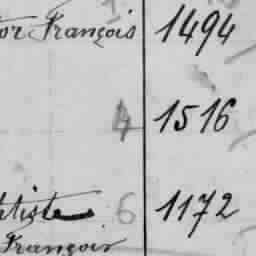 tor François 1494
4 1516
tiste 6 1172
François